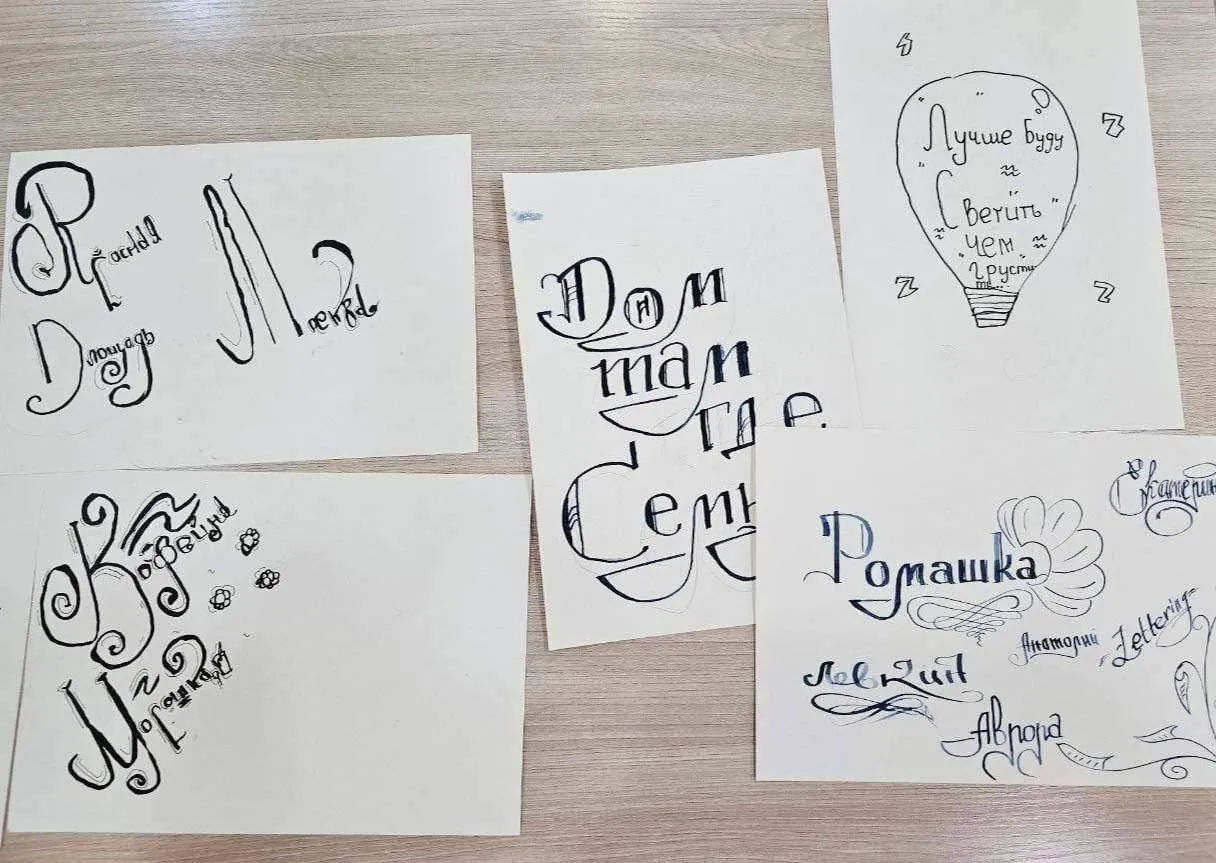 Красная
Площадь
Москва
Дом
там
где
Семь
Лучше буду
Светить
чем
грусти
ть...
Кофейня
Мурашка
Екатерин
Ромашка
Анатолий
Lettering
Левкий
Аврора